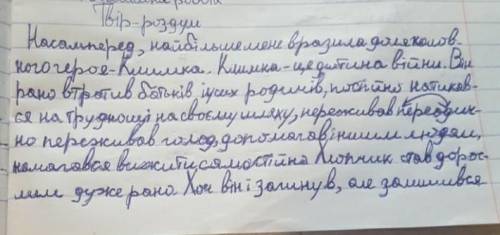 робота
Твір-роздум
Насамперед, найбільше мене вразила доля голов-
ного героя-Климка. Климко-це дитина війни. Він
рано втратив батьків і усіх родичів, постійно натикав-
ся на труднощі на своєму шляху, переживав
но переживав голод, допомагав іншим людям,
намагався вижити самостійно. Хлопчик став дорос-
лим дуже рано. Хоч він і загинув, але залишився